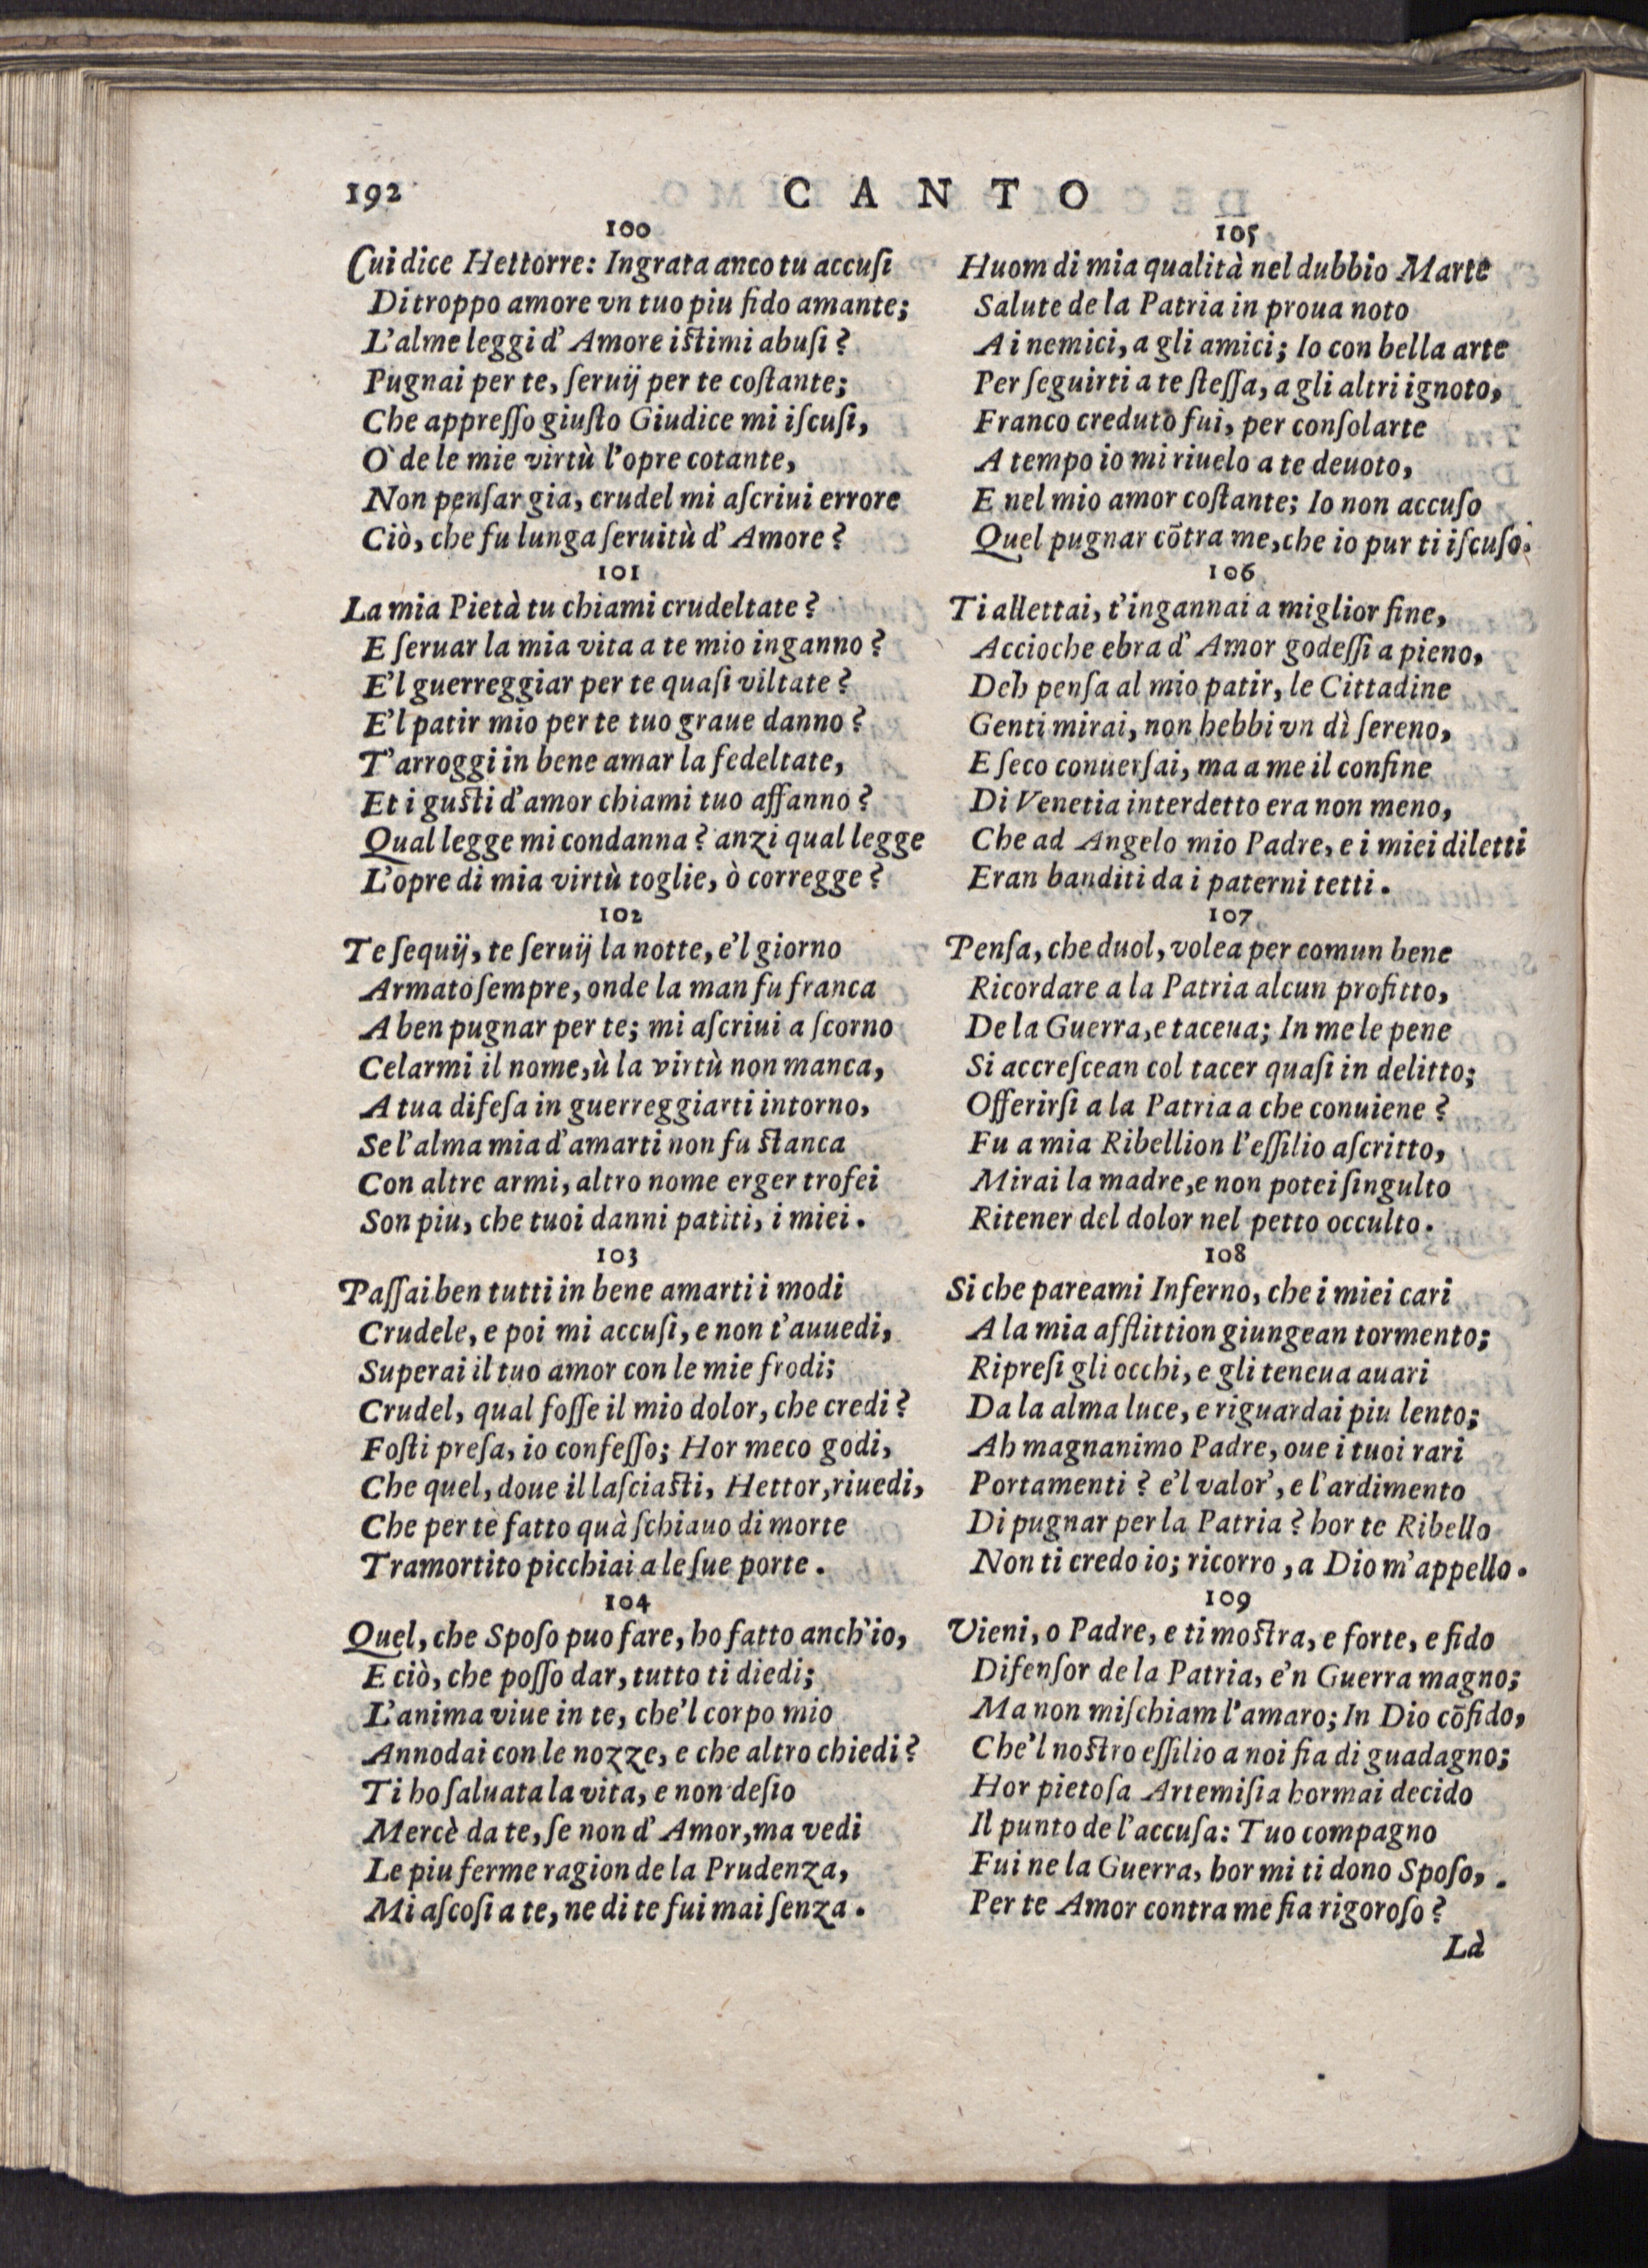 192 CANTO
100
Cui dice Hettorre: Ingrata anco tu accuſi
Di troppo amore vn tuo piu fido amante;
L'alme leggi d'Amore iſtimi abuſi?
Pugnai per te, ſeruij per te coſtante;
Che appreſſo giuſto Giudice mi iſcuſi,
O' de le mie virtù l'opre cotante,
Non penſar gia, crudel mi aſcriui errore
Ciò, che fu lunga ſeruitù d'Amore?
101
La mia Pietà tu chiami crudeltate?
E ſeruar la mia vita a te mio inganno?
E'l guerreggiar per te quaſi viltate?
E'l patir mio per te tuo graue danno?
T'arroggi in bene amar la fedeltate,
Et i guſti d'amor chiami tuo affanno?
Qual legge mi condanna? anzi qual legge
L'opre di mia virtù toglie, ò corregge?
102
Te ſequij, te ſeruij la notte, e'l giorno
Armato ſempre, onde la man fu franca
A ben pugnar per te; mi aſcriui a ſcorno
Celarmi il nome, ù la virtù non manca,
A tua difeſa in guerreggiarti intorno,
Se l'alma mia d'amarti non fu ſtanca
Con altre armi, altro nome erger trofei
Son piu, che tuoi danni patiti, i miei.
103
Paſſai ben tutti in bene amarti i modi
Crudele, e poi mi accuſi, e non t'auuedi,
Superai il tuo amor con le mie frodi;
Crudel, qual foſſe il mio dolor, che credi?
Foſti preſa, io confeſſo; Hor meco godi,
Che quel, doue il laſciaſti, Hettor, riuedi,
Che per te fatto quà ſchiauo di morte
Tramortito picchiai a le ſue porte.
104
Quel, che Spoſo puo fare, ho fatto anch'io,
E ciò, che poſſo dar, tutto ti diedi;
L'anima viue in te, che'l corpo mio
Annodai con le nozze, e che altro chiedi?
Ti ho ſaluata la vita, e non deſio
Mercè da te, ſe non d'Amor, ma vedi
Le piu ferme ragion de la Prudenza,
Mi aſcoſi a te, ne di te fui mai ſenza.
105
Huom di mia qualità nel dubbio Marte
Salute de la Patria in proua noto
A i nemici, a gli amici; Io con bella arte
Per ſeguirti a te ſteſſa, a gli altri ignoto,
Franco creduto fui, per conſolarte
A tempo io mi riuelo a te deuoto,
E nel mio amor coſtante; Io non accuſo
Quel pugnar cõtra me, che io pur ti iſcuſo.
106
Ti allettai, t'ingannai a miglior fine,
Accioche ebra d'Amor godeſſi a pieno,
Deh penſa al mio patir, le Cittadine
Genti mirai, non hebbi vn dì ſereno,
E ſeco conuerſai, ma a me il confine
Di Venetia interdetto era non meno,
Che ad Angelo mio Padre, e i miei diletti
Eran banditi da i paterni tetti.
107
Penſa, che duol, volea per comun bene
Ricordare a la Patria alcun profitto,
De la Guerra, e taceua; In me le pene
Si accreſcean col tacer quaſi in delitto;
Offerirſi a la Patria a che conuiene?
Fu a mia Ribellion l'eſſilio aſcritto,
Mirai la madre, e non potei ſingulto
Ritener del dolor nel petto occulto.
108
Si che pareami Inferno, che i miei cari
A la mia afflittion giungean tormento;
Ripreſi gli occhi, e gli teneua auari
Da la alma luce, e riguardai piu lento;
Ah magnanimo Padre, oue i tuoi rari
Portamenti? e'l valor, e l'ardimento
Di pugnar per la Patria? hor te Ribello
Non ti credo io; ricorro, a Dio m'appello.
109
Vieni, o Padre, e ti moſtra, e forte, e fido
Difenſor de la Patria, e'n Guerra magno;
Ma non miſchiam l'amaro; In Dio cõfido,
Che'l noſtro eſſilio a noi fia di guadagno;
Hor pietoſa Artemiſia hormai decido
Il punto de l'accuſa: Tuo compagno
Fui ne la Guerra, hor mi ti dono Spoſo,
Per te Amor contra me fia rigoroſo?
Là